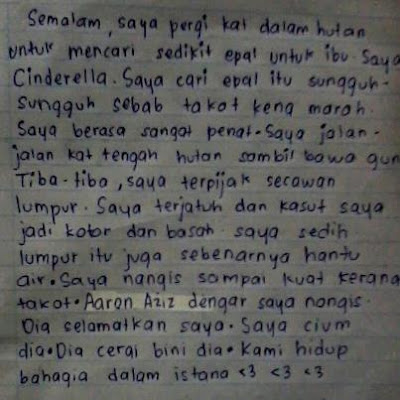 Semalam, saya pergi kat dalam hutan
untuk mencari sedikit epal untuk ibu saya
Cinderella. Saya cari epal itu sungguh-
sungguh sebab takot keng marah.
Saya berasa sangat penat. Saya jalan-
jalan kat tengah hutan sambil bawa gun
Tiba-tiba, saya terpijak secawan
lumpur. Saya terjatuh dan kasut saya
jadi kotor dan basah. saya sedih
lumpur itu juga sebenarnya hantu
air. Saya nangis sampai kuat kerana
takot. Aaron Aziz dengar saya nangis.
Dia selamatkan saya. Saya cium
dia. Dia cerai bini dia. Kami hidup
bahagia dalam istana <3 <3 <3